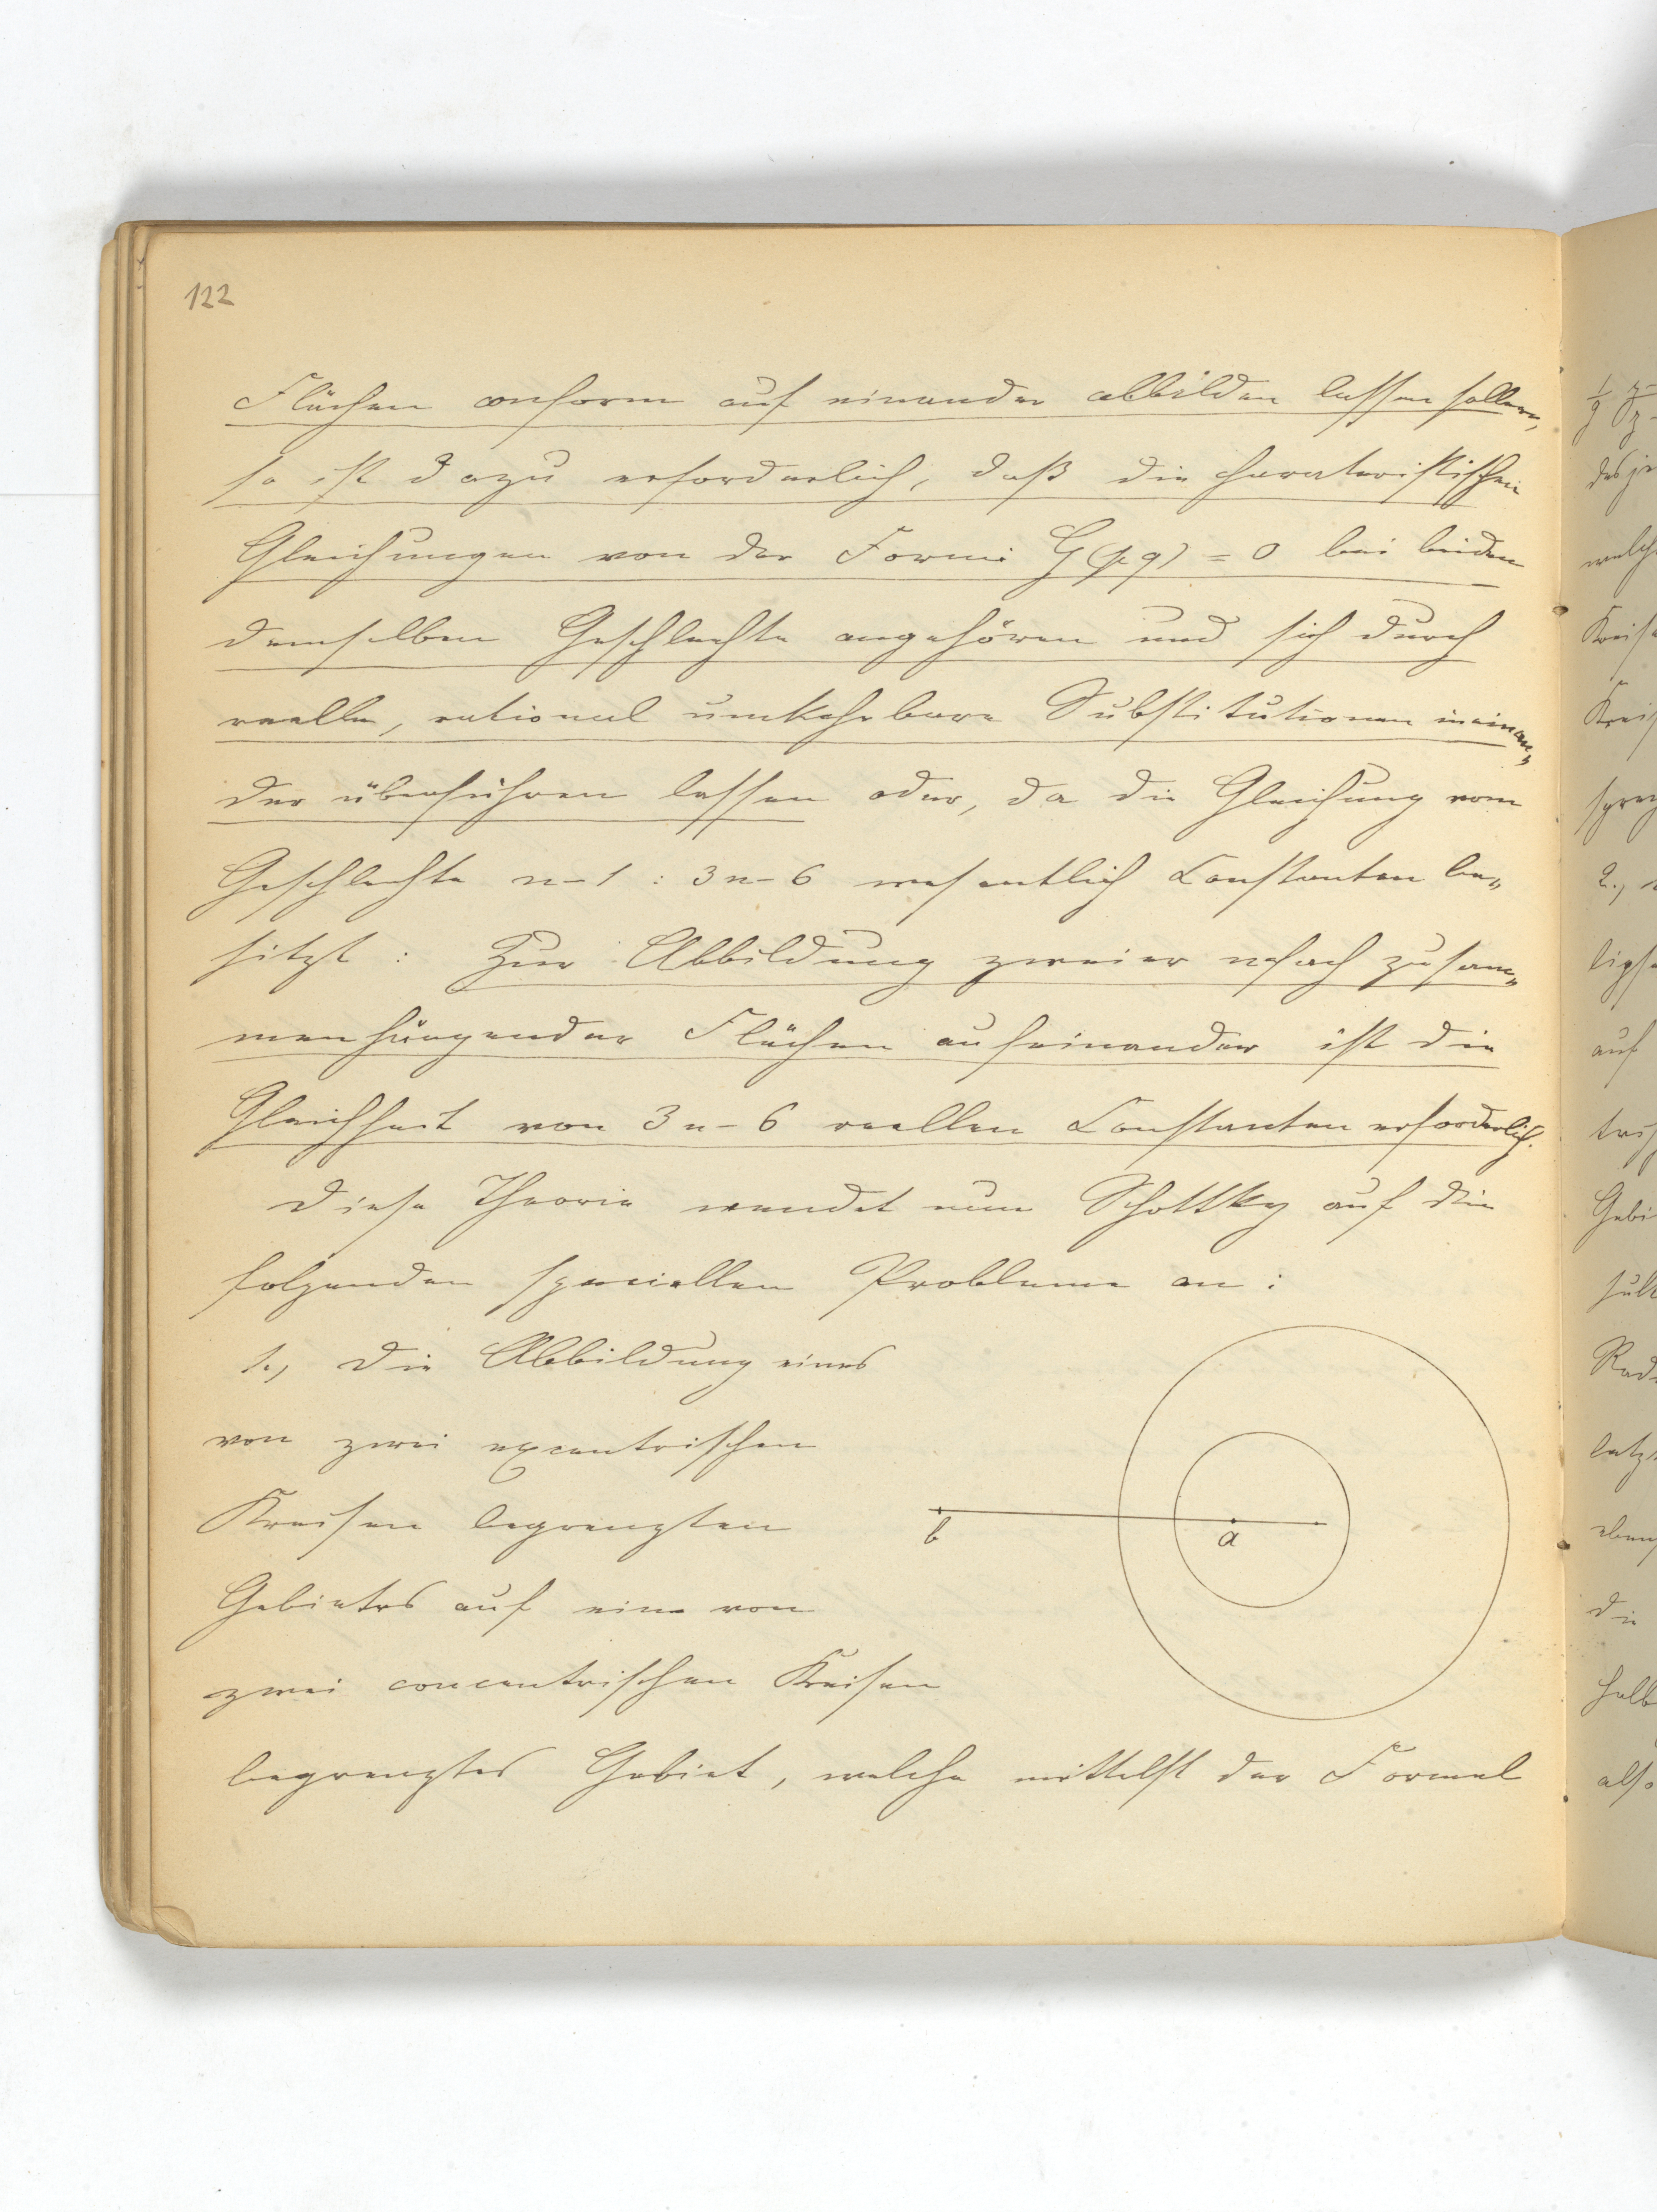 122
Flächen conform auf einander abbilden lassen sollen,
so ist dazu erforderlich, daß die charateristischen
Gleichungen von der Form G(pq) = 0 bei beiden
demselben Geschlechte angehören und sich durch
reelle, rational umkehrbare Substitutionen ineinan„
der überführen lassen oder, da die Gleichung vom
Geschlechte n-1 : 3n-6 wesentlich Constanten be„
sitzt : Zur Abbildung zweier nfach zusam„
menhängender Flächen aufeinander ist die
Gleichheit von 3n-6 reellen Constanten erforderlich.
Diese Theorie wendet nun Schottky auf die
folgenden speciellen Probleme an :
1., Die Abbildung eines
von zwei excentrischen
Kreisen begrenzten
b
a
Gebietes auf ein von
zwei concentrischen Kreisen
begrenztes Gebiet, welche mittelst der Formel
welch
Kreise
Kreis
auf
Gebi
Rad
die
halb
also